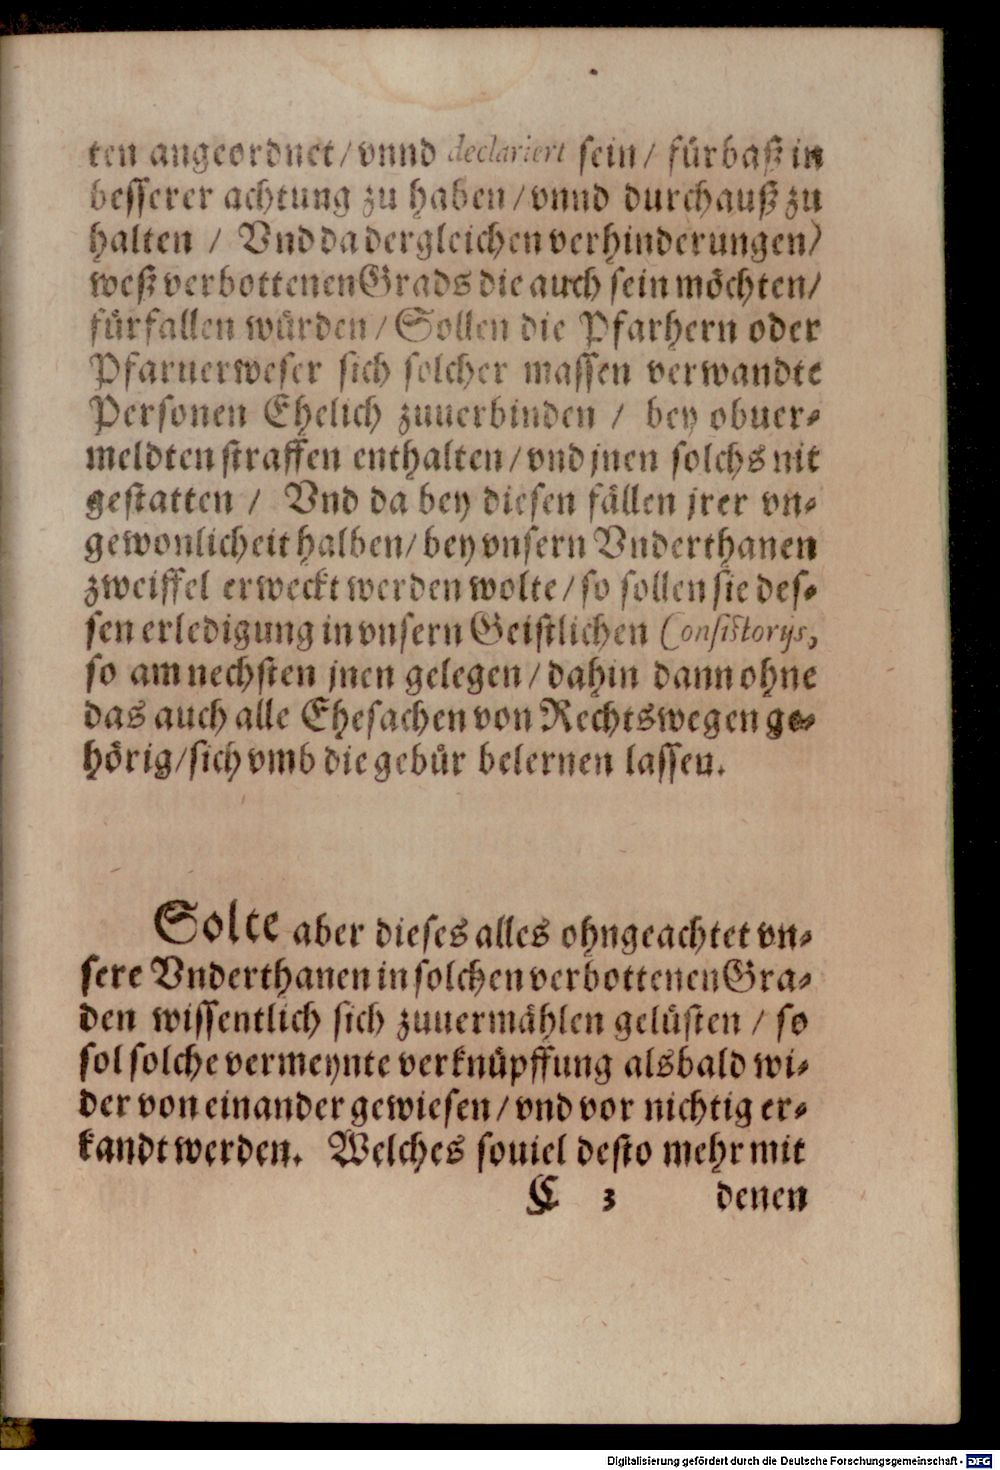 ten angeordnet / vnnd declariert sein / fürbaß in
besserer achtung zu haben / vnnd durchauß zu
halten / Vnd da dergleichen verhinderungen /
weß verbottenen Grads die auch sein möchten /
fürfallen würden / Sollen die Pfarhern oder
Pfaruerweser sich solcher massen verwandte
Personen Ehelich zuuerbinden / bey obuer-
meldten straffen enthalten / vnd jnen solchs nit
gestatten / Vnd da bey diesen fällen jrer vn-
gewonlicheit halben / bey vnsern Vnderthanen
zweiffel erweckt werden wolte / so sollen sie des-
sen erledigung in vnsern Geistlichen Consistorijs,
so am nechsten jnen gelegen / dahin dann ohne
das auch alle Ehesachen von Rechtswegen ge-
hörig / sich vmb die gebür belernen lassen.
Solte aber dieses alles ohngeachtet vn-
sere Vnderthanen in solchen verbottenen Gra-
den wissentlich sich zuuermählen gelüsten / so
sol solche vermeynte verknüpffung alsbald wi-
der von einander gewiesen / vnd vor nichtig er-
kandt werden. Welches souiel desto mehr mit
C 3 denen
Digitalisierung gefördert durch die Deutsche Forschungsgemeinschaft - DFG